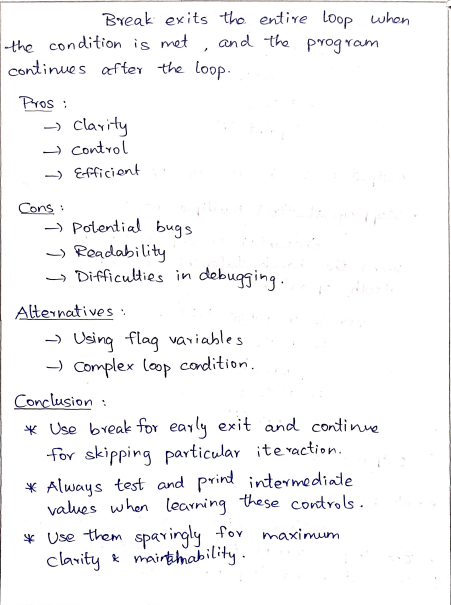 Break exits the entire loop when
the condition is met, and the program
continues after the loop.
Pros :
→ Clarity
→ Control
→ Efficient
Cons :
→ Potential bugs
→ Readability
→ Difficulties in debugging.
Alternatives :
→ Using flag variables
→ Complex loop condition.
Conclusion :
* Use break for early exit and continue
for skipping particular iteraction.
* Always test and print intermediate
values when learning these controls.
* Use them sparingly for maximum
clarity &